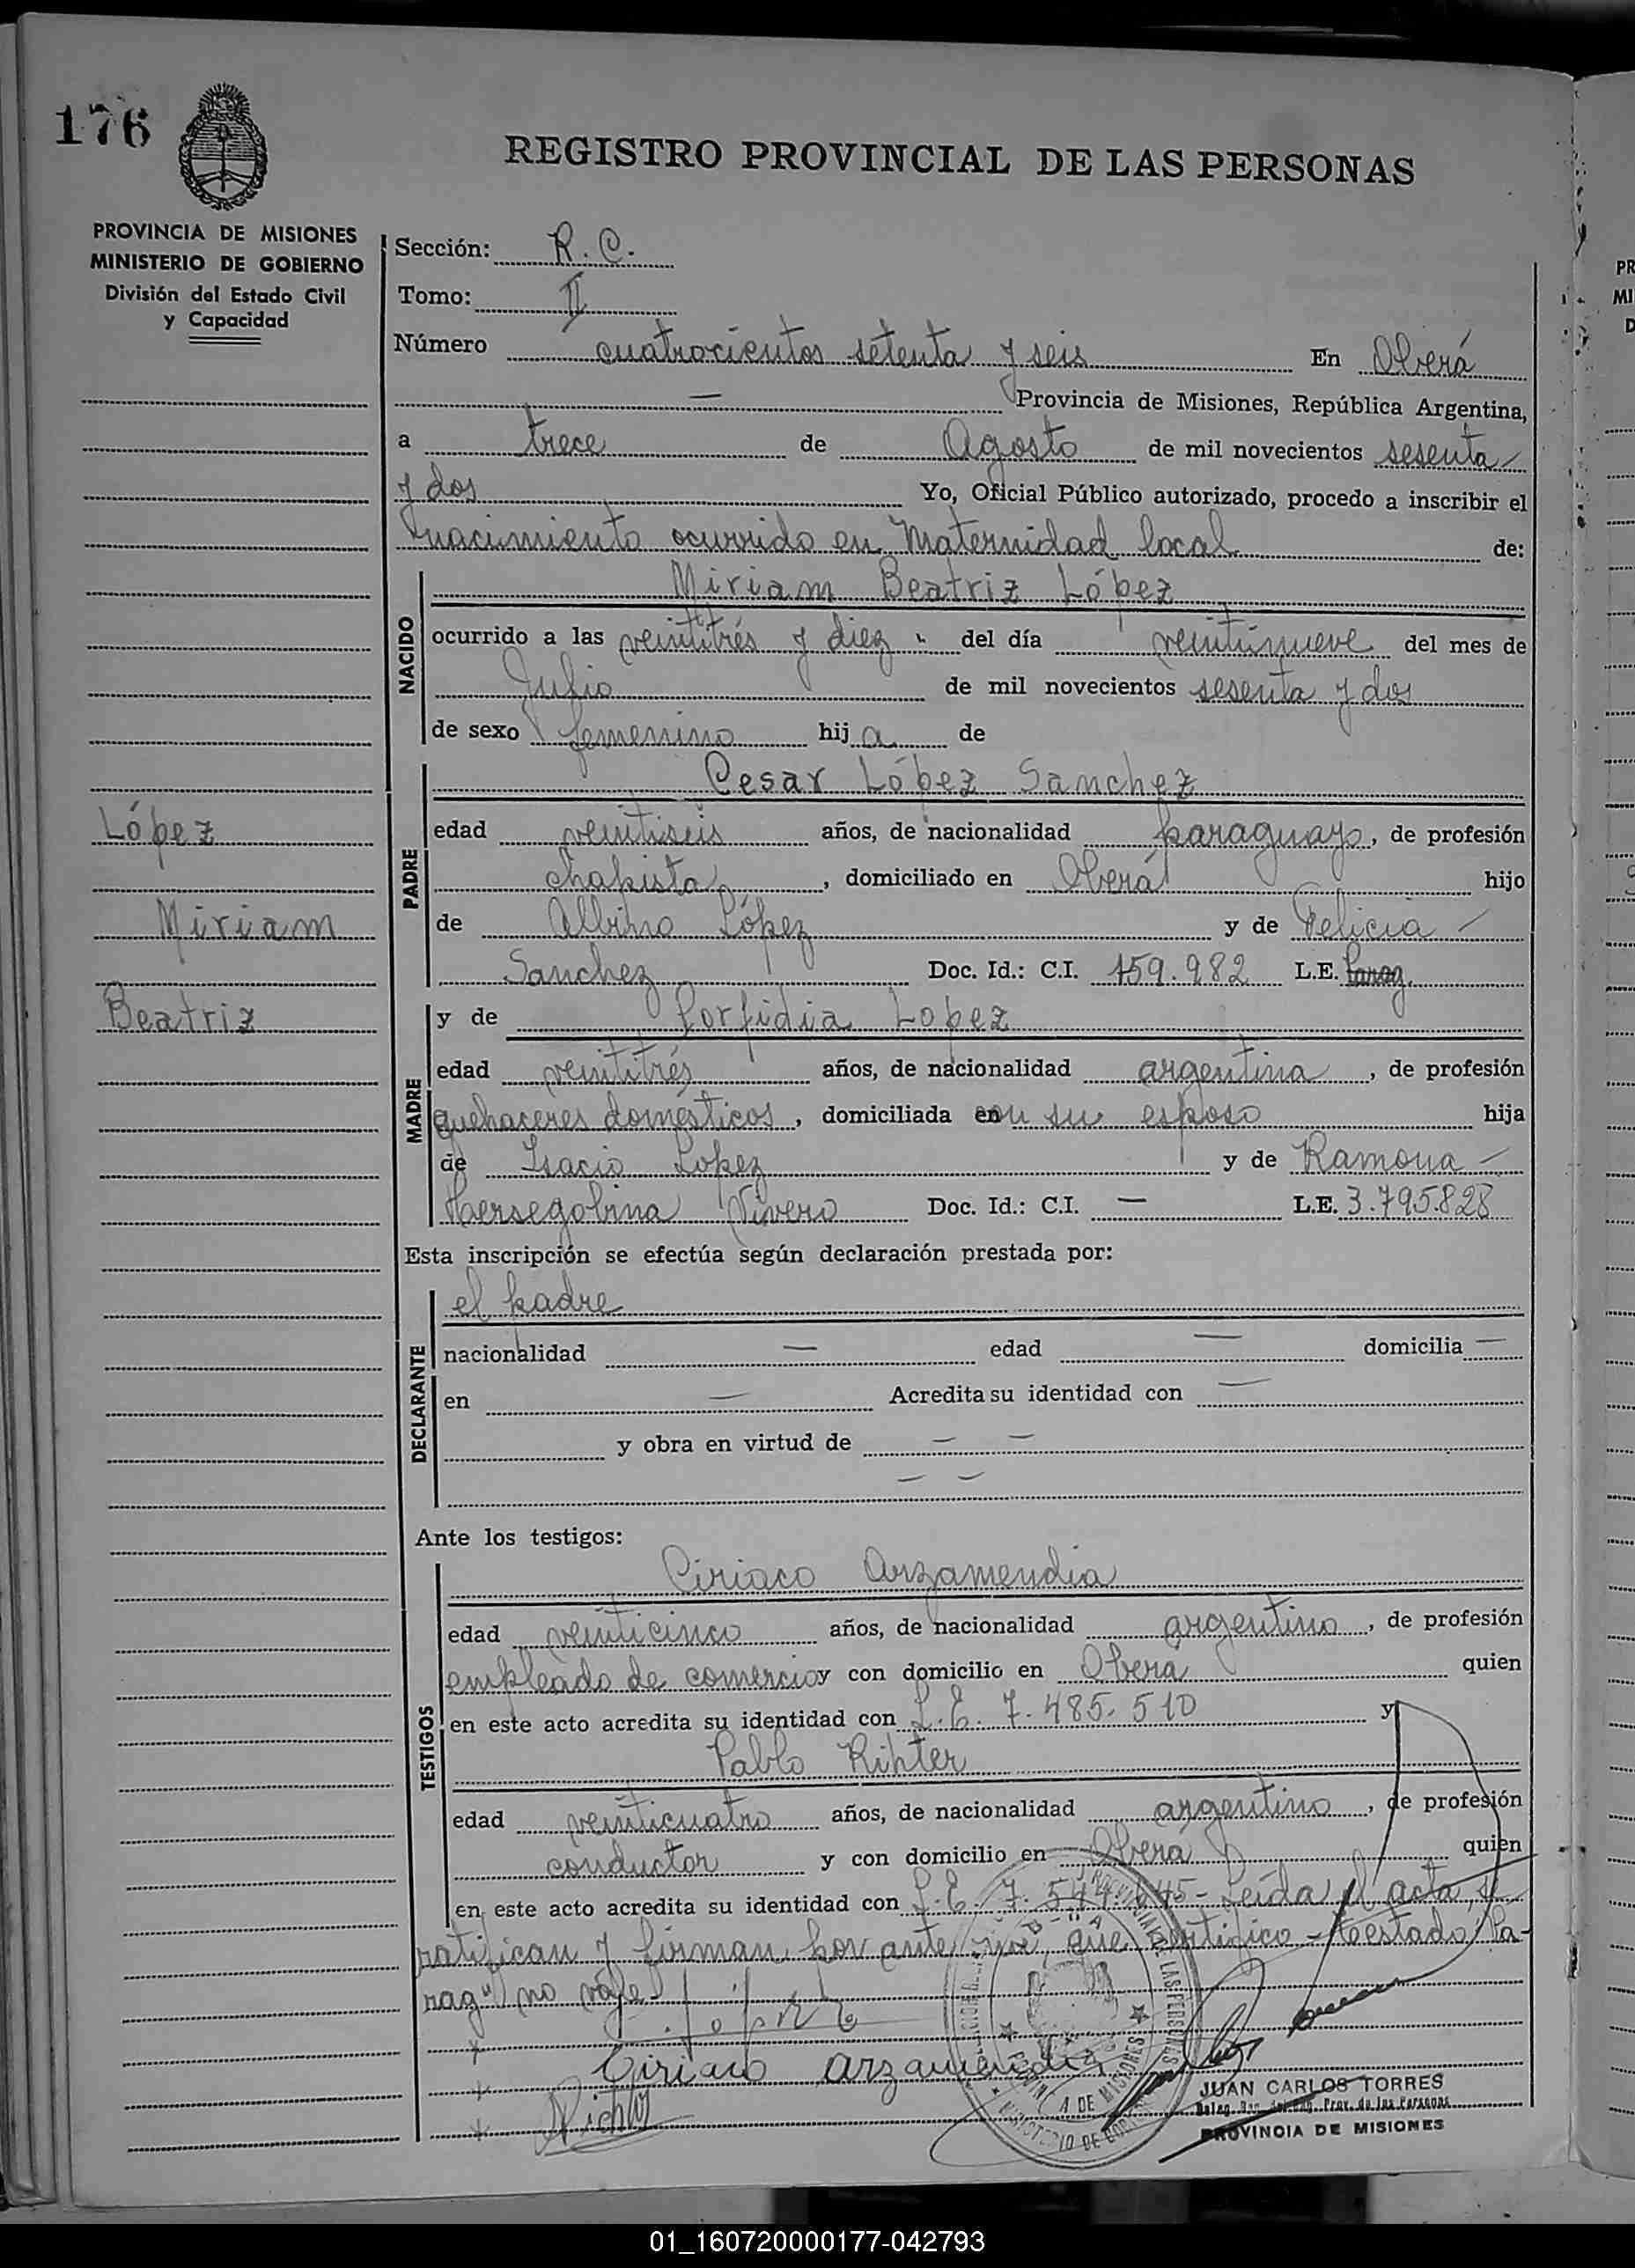 176
REGISTRO PROVINCIAL DE LAS PERSONAS
PROVINCIA DE MISIONES
MINISTERIO DE GOBIERNO
División del Estado Civil
y Capacidad
Sección: R. C.
Tomo: II
Número cuatrocientos setenta y seis En Oberá
— Provincia de Misiones, República Argentina,
a trece de Agosto de mil novecientos sesenta
y dos Yo, Oficial Público autorizado, procedo a inscribir el
nacimiento ocurrido en Maternidad local de:
NACIDO
Miriam Beatriz López
ocurrido a las veintitrés y diez del día veintinueve del mes de
Julio de mil novecientos sesenta y dos
de sexo femenino hija de
PADRE
Cesar López Sanchez
edad veintiseis años, de nacionalidad paraguayo, de profesión
chapista, domiciliado en Oberá hijo
de Albino López y de Felicia —
Sanchez Doc. Id.: C.I. 159.982 L.E. Parag.
MADRE
y de Porfidia Lopez
edad veintitrés años, de nacionalidad argentina, de profesión
quehaceres domésticos, domiciliada con su esposo hija
de Isacio Lopez y de Ramona —
Hersegolina Vivero Doc. Id.: C.I. — L.E. 3.795.828
López
Miriam
Beatriz
Esta inscripción se efectúa según declaración prestada por:
DECLARANTE
el padre
nacionalidad — edad — domicilia —
en — Acredita su identidad con —
y obra en virtud de — —
— —
Ante los testigos:
TESTIGOS
Ciriaco Arzamendia
edad veinticinco años, de nacionalidad argentino, de profesión
empleado de comercio y con domicilio en Obera quien
en este acto acredita su identidad con L.E. 7.485.510 y
Pablo Rihter
edad veinticuatro años, de nacionalidad argentino, de profesión
conductor y con domicilio en Obera quien
en este acto acredita su identidad con L.E. 7.544. Leída el acta,
ratifican y firman por ante mí, que certifico — Testado "Pa-
rag" no vale
Ciriaco Arzamendia
JUAN CARLOS TORRES
PROVINCIA DE MISIONES
01_160720000177-042793